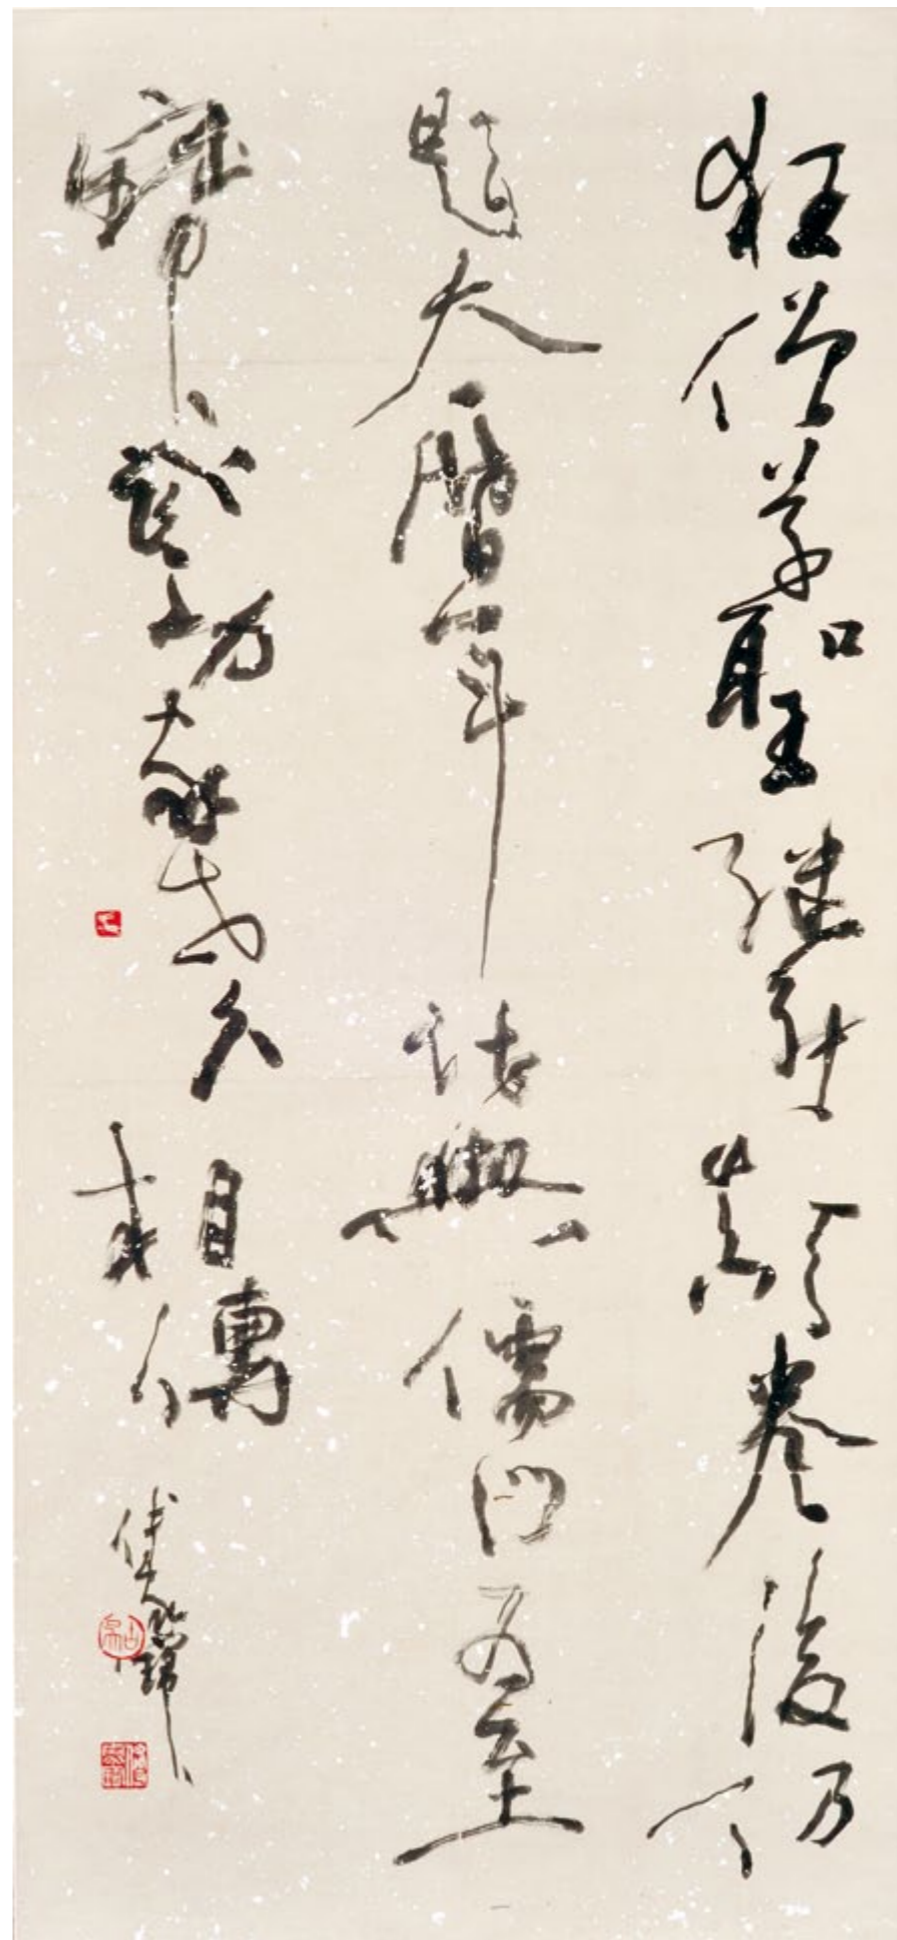 狂僧草聖繼張顛卷後仍
題大曆年法與儒門為至
寶武功家世久相傳